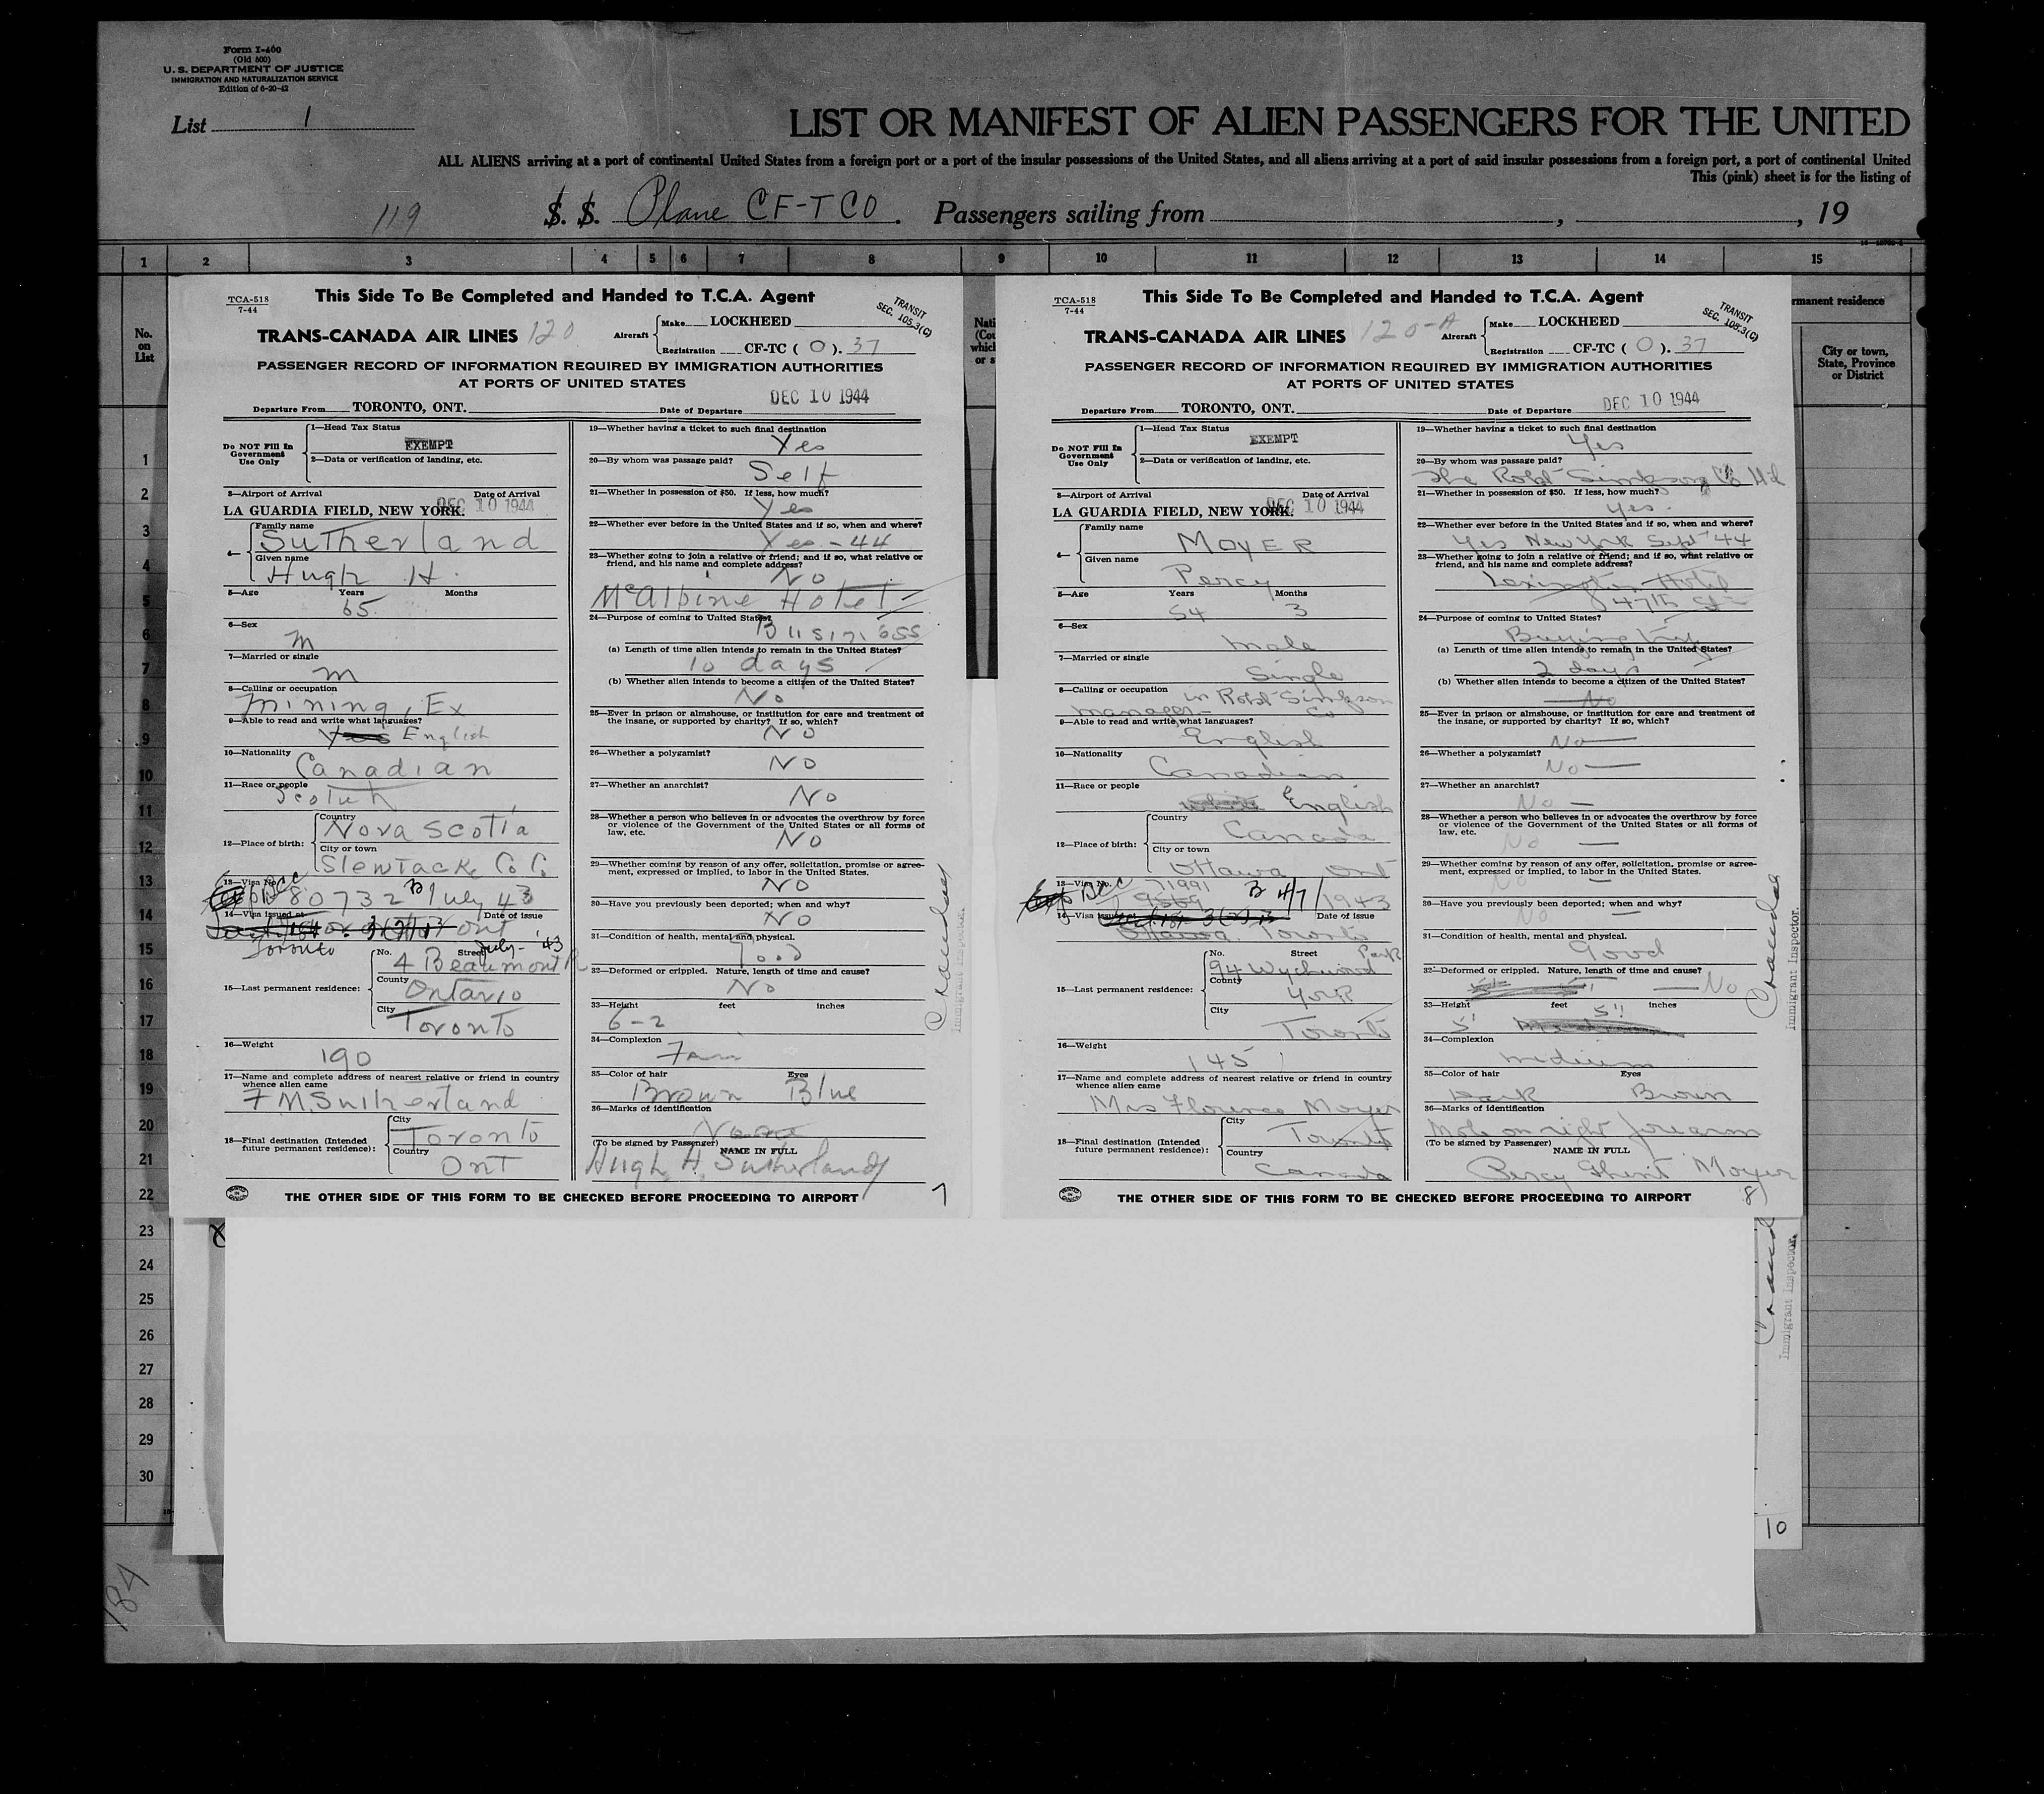 Form I-400
(Old 500)
U. S. DEPARTMENT OF JUSTICE
IMMIGRATION AND NATURALIZATION SERVICE
Edition of 6-20-42
List 1
LIST OR MANIFEST OF ALIEN PASSENGERS FOR THE UNITED
ALL ALIENS arriving at a port of continental United States from a foreign port or a port of the insular possessions of the United States, and all aliens arriving at a port of said insular possessions from a foreign port, a port of continental United
This (pink) sheet is for the listing of
119 S. S. Plane CF-TCO. Passengers sailing from , , 19
1 2 3 4 5 6 7 8 9 10 11 12 13 14 15
No. on List
rmanent residence
City or town, State, Province or District
1
2
3
4
5
6
7
8
9
10
11
12
13
14
15
16
17
18
19
20
21
22
23
24
25
26
27
28
29
30
184
TCA-518
7-44
This Side To Be Completed and Handed to T.C.A. Agent
TRANSIT
SEC. 105.3(C)
TRANS-CANADA AIR LINES 120
Aircraft Make LOCKHEED
Registration CF-TC ( O ). 37
PASSENGER RECORD OF INFORMATION REQUIRED BY IMMIGRATION AUTHORITIES
AT PORTS OF UNITED STATES
Departure From TORONTO, ONT. Date of Departure DEC 10 1944
Do NOT Fill In Government Use Only
1—Head Tax Status EXEMPT
2—Data or verification of landing, etc.
3—Airport of Arrival Date of Arrival
LA GUARDIA FIELD, NEW YORK. DEC 10 1944
4— Family name Sutherland
Given name Hugh H.
5—Age Years Months
65
6—Sex M
7—Married or single M
8—Calling or occupation
Mining, Ex
9—Able to read and write what languages?
Yes English
10—Nationality
Canadian
11—Race or people
Scotch
12—Place of birth: Country Nova Scotia
City or town
13—Visa No. Dec 80732 B 1 July 43
14—Visa issued at Date of issue
Toronto July - '43
15—Last permanent residence: No. Street
4 Beaumont R
County Ontario
City Toronto
16—Weight 190
17—Name and complete address of nearest relative or friend in country whence alien came
F M Sutherland
18—Final destination (Intended future permanent residence): City Toronto
Country Ont
19—Whether having a ticket to such final destination
Yes
20—By whom was passage paid?
Self
21—Whether in possession of $50. If less, how much?
Yes
22—Whether ever before in the United States and if so, when and where?
Yes - 44
23—Whether going to join a relative or friend; and if so, what relative or friend, and his name and complete address?
No
McAlpine Hotel
24—Purpose of coming to United States?
Business
(a) Length of time alien intends to remain in the United States?
10 days
(b) Whether alien intends to become a citizen of the United States?
No
25—Ever in prison or almshouse, or institution for care and treatment of the insane, or supported by charity? If so, which?
No
26—Whether a polygamist?
No
27—Whether an anarchist?
No
28—Whether a person who believes in or advocates the overthrow by force or violence of the Government of the United States or all forms of law, etc.
No
29—Whether coming by reason of any offer, solicitation, promise or agreement, expressed or implied, to labor in the United States.
No
30—Have you previously been deported; when and why?
No
31—Condition of health, mental and physical.
Good
32—Deformed or crippled. Nature, length of time and cause?
No
33—Height feet inches
6-2
34—Complexion
Fair
35—Color of hair Eyes
Brown Blue
36—Marks of identification
None
(To be signed by Passenger) NAME IN FULL
Hugh H Sutherland
Immigrant Inspector.
THE OTHER SIDE OF THIS FORM TO BE CHECKED BEFORE PROCEEDING TO AIRPORT
7
TCA-518
7-44
This Side To Be Completed and Handed to T.C.A. Agent
TRANSIT
SEC. 105.3(C)
TRANS-CANADA AIR LINES 120-A
Aircraft Make LOCKHEED
Registration CF-TC ( O ). 37
PASSENGER RECORD OF INFORMATION REQUIRED BY IMMIGRATION AUTHORITIES
AT PORTS OF UNITED STATES
Departure From TORONTO, ONT. Date of Departure DEC 10 1944
Do NOT Fill In Government Use Only
1—Head Tax Status EXEMPT
2—Data or verification of landing, etc.
3—Airport of Arrival Date of Arrival
LA GUARDIA FIELD, NEW YORK. DEC 10 1944
4— Family name Moyer
Given name Percy
5—Age Years Months
54 3
6—Sex male
7—Married or single
Single
8—Calling or occupation
manager in Robt Simpson Co
9—Able to read and write what languages?
English
10—Nationality
Canadian
11—Race or people
white English
12—Place of birth: Country Canada
City or town
Ottawa Ont
13—Visa No. Dec 71991 B 4/7/1943
9569
14—Visa issued at Date of issue
Ottawa. Toronto
15—Last permanent residence: No. Street
94 Wychwood Park
County York
City Toronto
16—Weight 145
17—Name and complete address of nearest relative or friend in country whence alien came
Mrs Florence Moyer
18—Final destination (Intended future permanent residence): City Toronto
Country Canada
19—Whether having a ticket to such final destination
Yes
20—By whom was passage paid?
The Robt Simpson Co Ltd
21—Whether in possession of $50. If less, how much?
Yes.
22—Whether ever before in the United States and if so, when and where?
Yes New York Sept '44
23—Whether going to join a relative or friend; and if so, what relative or friend, and his name and complete address?
Lexington Hotel
47th St
24—Purpose of coming to United States?
Buying trip
(a) Length of time alien intends to remain in the United States?
2 days
(b) Whether alien intends to become a citizen of the United States?
No
25—Ever in prison or almshouse, or institution for care and treatment of the insane, or supported by charity? If so, which?
No
26—Whether a polygamist?
No
27—Whether an anarchist?
No
28—Whether a person who believes in or advocates the overthrow by force or violence of the Government of the United States or all forms of law, etc.
No
29—Whether coming by reason of any offer, solicitation, promise or agreement, expressed or implied, to labor in the United States.
No
30—Have you previously been deported; when and why?
No
31—Condition of health, mental and physical.
Good
32—Deformed or crippled. Nature, length of time and cause?
No
33—Height feet inches
5' 5"
34—Complexion
medium
35—Color of hair Eyes
Dark Brown
36—Marks of identification
Mole on right forearm
(To be signed by Passenger) NAME IN FULL
Percy Ghent Moyer
Immigrant Inspector.
THE OTHER SIDE OF THIS FORM TO BE CHECKED BEFORE PROCEEDING TO AIRPORT
8
Immigrant Inspector.
10